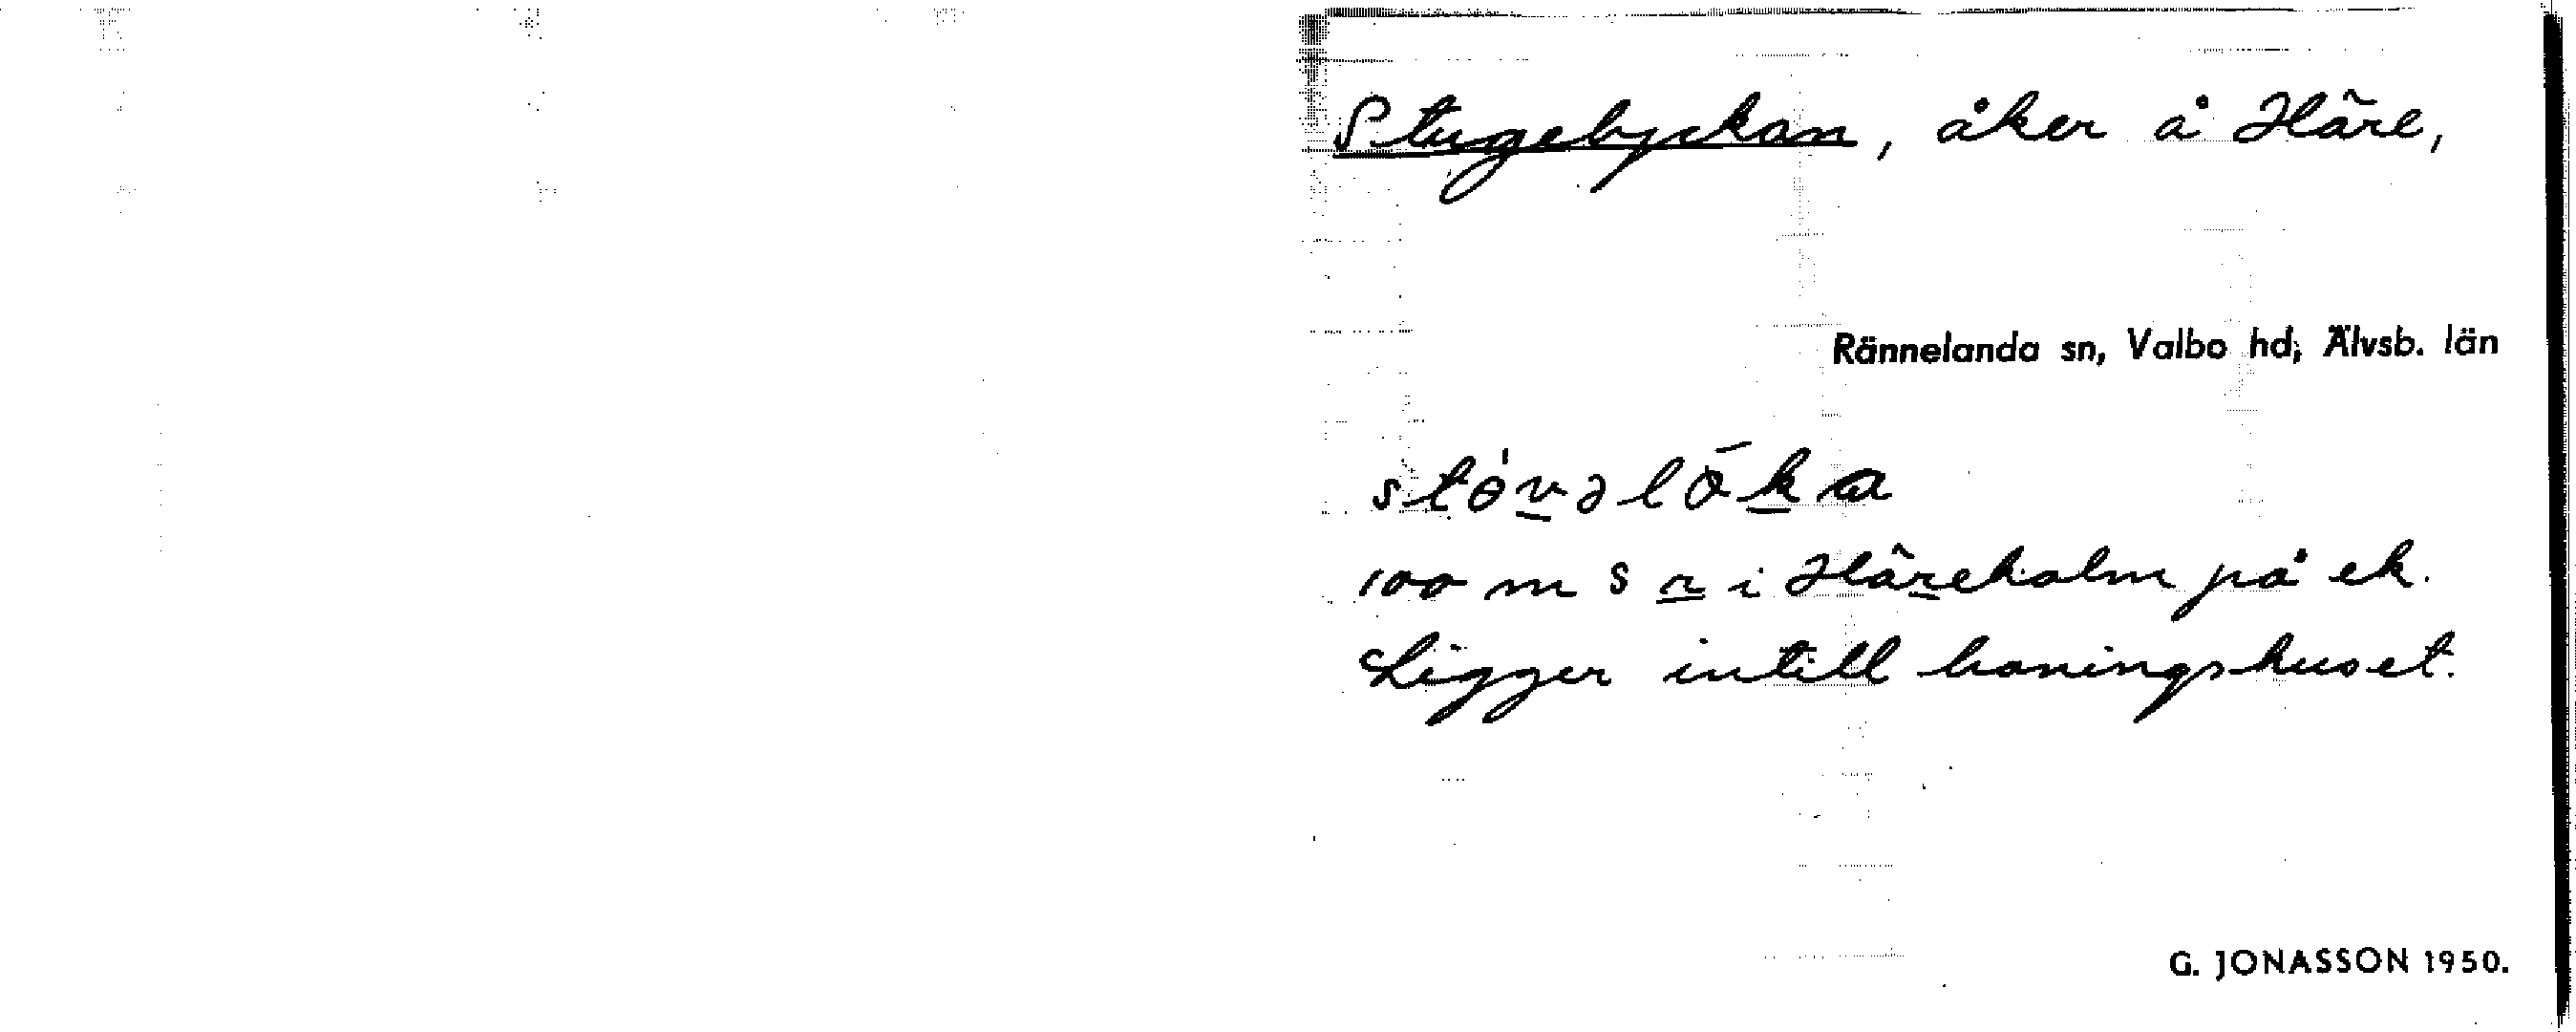 Stugelyckan, åker å Häre,
Rännelanda sn, Valbo hd, Älvsb. län
stövəlöka
100 m S n i Häreholm på ek.
Ligger intill boningshuset.
G. JONASSON 1950.